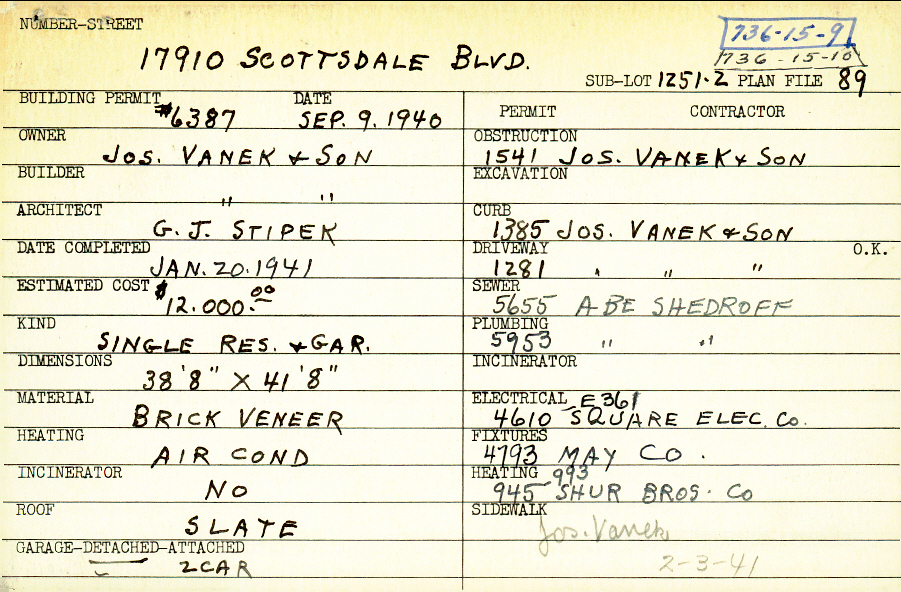 NUMBER-STREET
17910 SCOTTSDALE BLVD.
736-15-9
736-15-10
SUB-LOT 1251-2 PLAN FILE 89
BUILDING PERMIT #6387 DATE SEP. 9. 1940
OWNER
JOS. VANEK & SON
BUILDER
" "
ARCHITECT
G. J. STIPEK
DATE COMPLETED
JAN. 20. 1941
ESTIMATED COST $12.000.00
KIND
SINGLE RES. & GAR.
DIMENSIONS
38'8" X 41'8"
MATERIAL
BRICK VENEER
HEATING
AIR COND
INCINERATOR
NO
ROOF
SLATE
GARAGE-DETACHED-ATTACHED
2 CAR
PERMIT CONTRACTOR
OBSTRUCTION
1541 JOS. VANEK & SON
EXCAVATION
CURB
1385 JOS. VANEK & SON
DRIVEWAY O.K.
1281 " " "
SEWER
5655 ABE SHEDROFF
PLUMBING
5953 " "
INCINERATOR
ELECTRICAL E361
4610 SQUARE ELEC. Co.
FIXTURES
4793 MAY CO.
HEATING 993
945 SHUR BROS. Co
SIDEWALK
Jos. Vanek
2-3-41